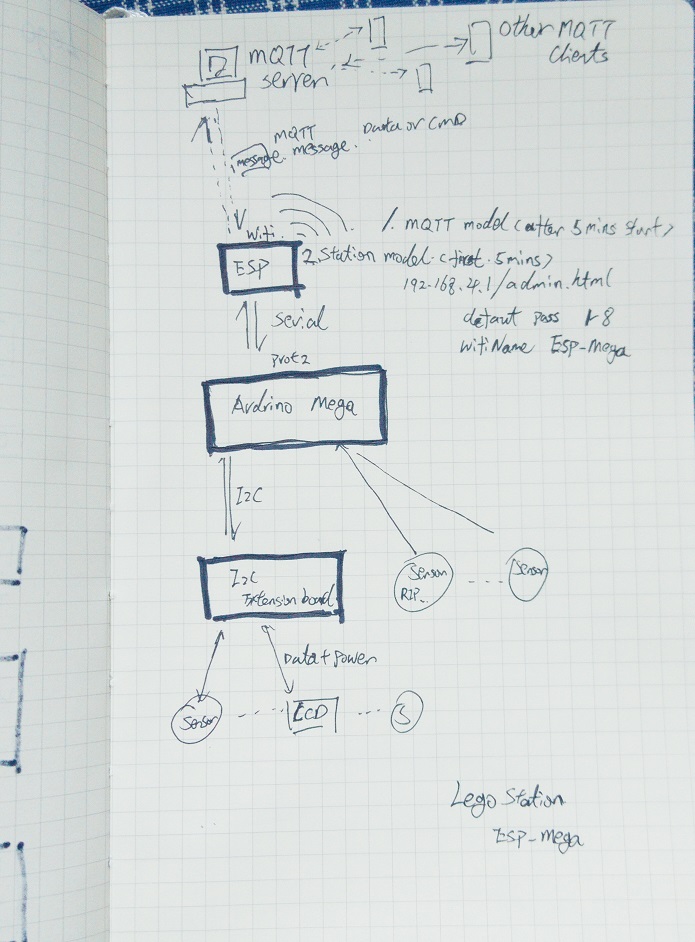 MQTT
server
Other MQTT
Clients
MQTT
message. message.
Data or CMD
Wifi.
ESP
1. MQTT model <after 5 mins start>
2. Station model. <first 5mins>
192.168.4.1/admin.html
pass 1-8
WifiName ESP-Mega
Serial
Prot2
Ardrino Mega
I2C
I2C
Extension board
Sensor
RIP..
Sensor
Data + Power
Sensor
LCD
S
Lego Station
ESP-Mega